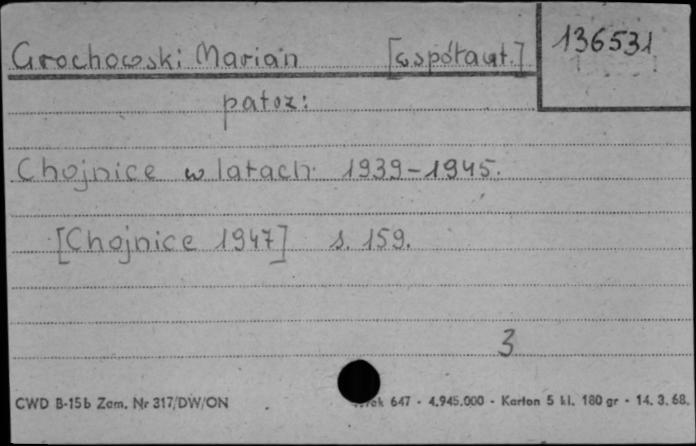 Grochowski Marian [współaut.] 136531
patoz:
Chojnice w latach 1939-1945.
[Chojnice 1947] s. 159.
3
CWD B-15b Zam. Nr 317/DW/ON 647 - 4.945.000 - Karton 5 kl. 180 gr - 14. 3. 68.